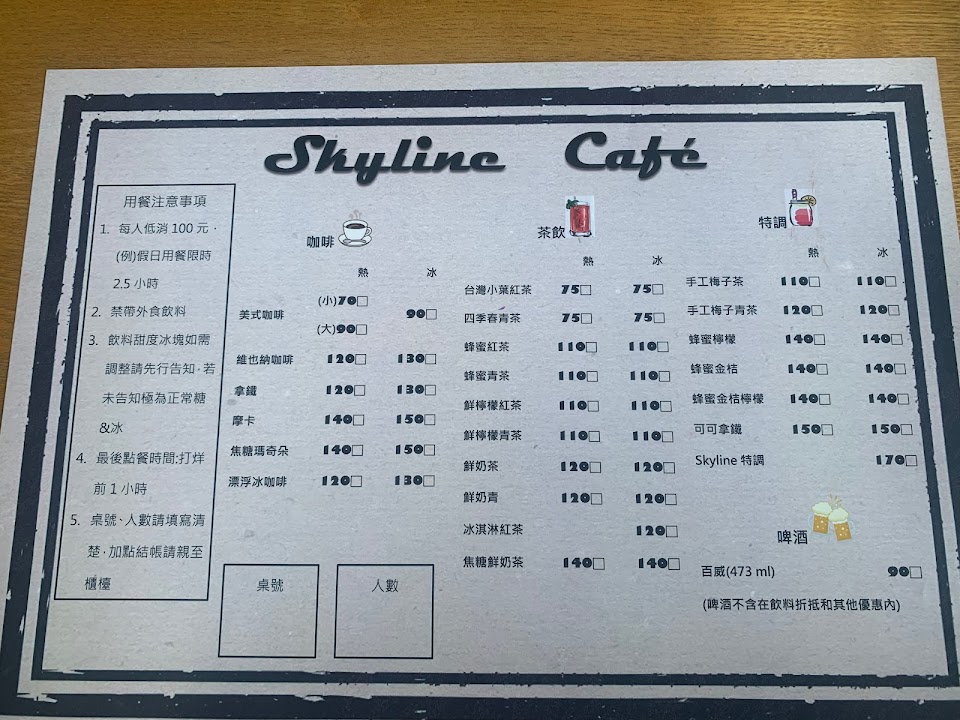 Skyline Café
用餐注意事項
1. 每人低消 100 元，
(例)假日用餐限時
2.5 小時
2. 禁帶外食飲料
3. 飲料甜度冰塊如需
調整請先行告知，若
未告知極為正常糖
&冰
4. 最後點餐時間:打烊
前 1 小時
5. 桌號、人數請填寫清
楚，加點結帳請親至
櫃檯
咖啡
熱 冰
美式咖啡 (小)70□ 90□
(大)90□
維也納咖啡 120□ 130□
拿鐵 120□ 130□
摩卡 140□ 150□
焦糖瑪奇朵 140□ 150□
漂浮冰咖啡 120□ 130□
桌號 人數
茶飲
熱 冰
台灣小葉紅茶 75□ 75□
四季春青茶 75□ 75□
蜂蜜紅茶 110□ 110□
蜂蜜青茶 110□ 110□
鮮檸檬紅茶 110□ 110□
鮮檸檬青茶 110□ 110□
鮮奶茶 120□ 120□
鮮奶青 120□ 120□
冰淇淋紅茶 120□
焦糖鮮奶茶 140□ 140□
特調
熱 冰
手工梅子茶 110□ 110□
手工梅子青茶 120□ 120□
蜂蜜檸檬 140□ 140□
蜂蜜金桔 140□ 140□
蜂蜜金桔檸檬 140□ 140□
可可拿鐵 150□ 150□
Skyline 特調 170□
啤酒
百威(473 ml) 90□
(啤酒不含在飲料折抵和其他優惠內)